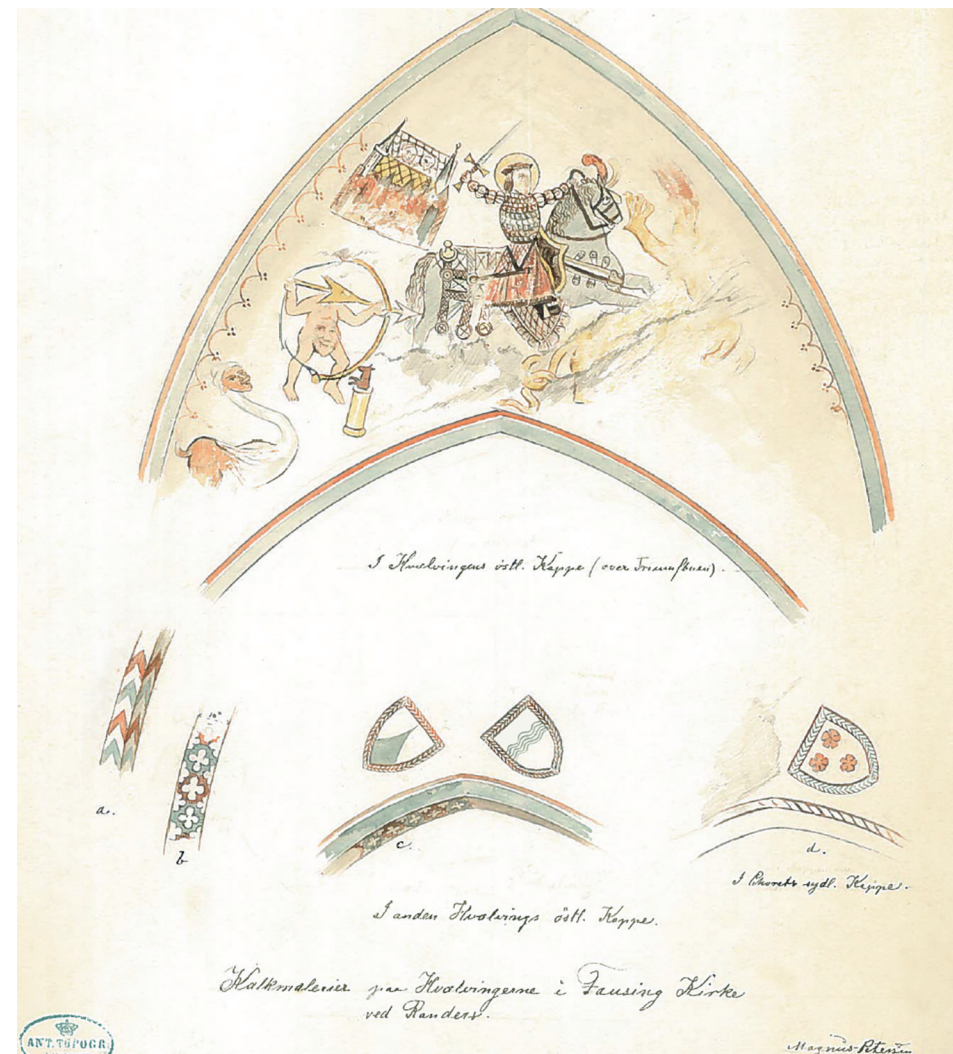 I Hvælvingens östl. Kappe (over Triumfbuen).
a.
10"
b
c.
d.
I Chorets sydl. Kappe.
I anden Hvælvings östl. Kappe.
Kalkmalerier paa Hvælvingerne i Fausing Kirke
ved Randers.
ANT. TOPOGR.
Magnus-Petersen